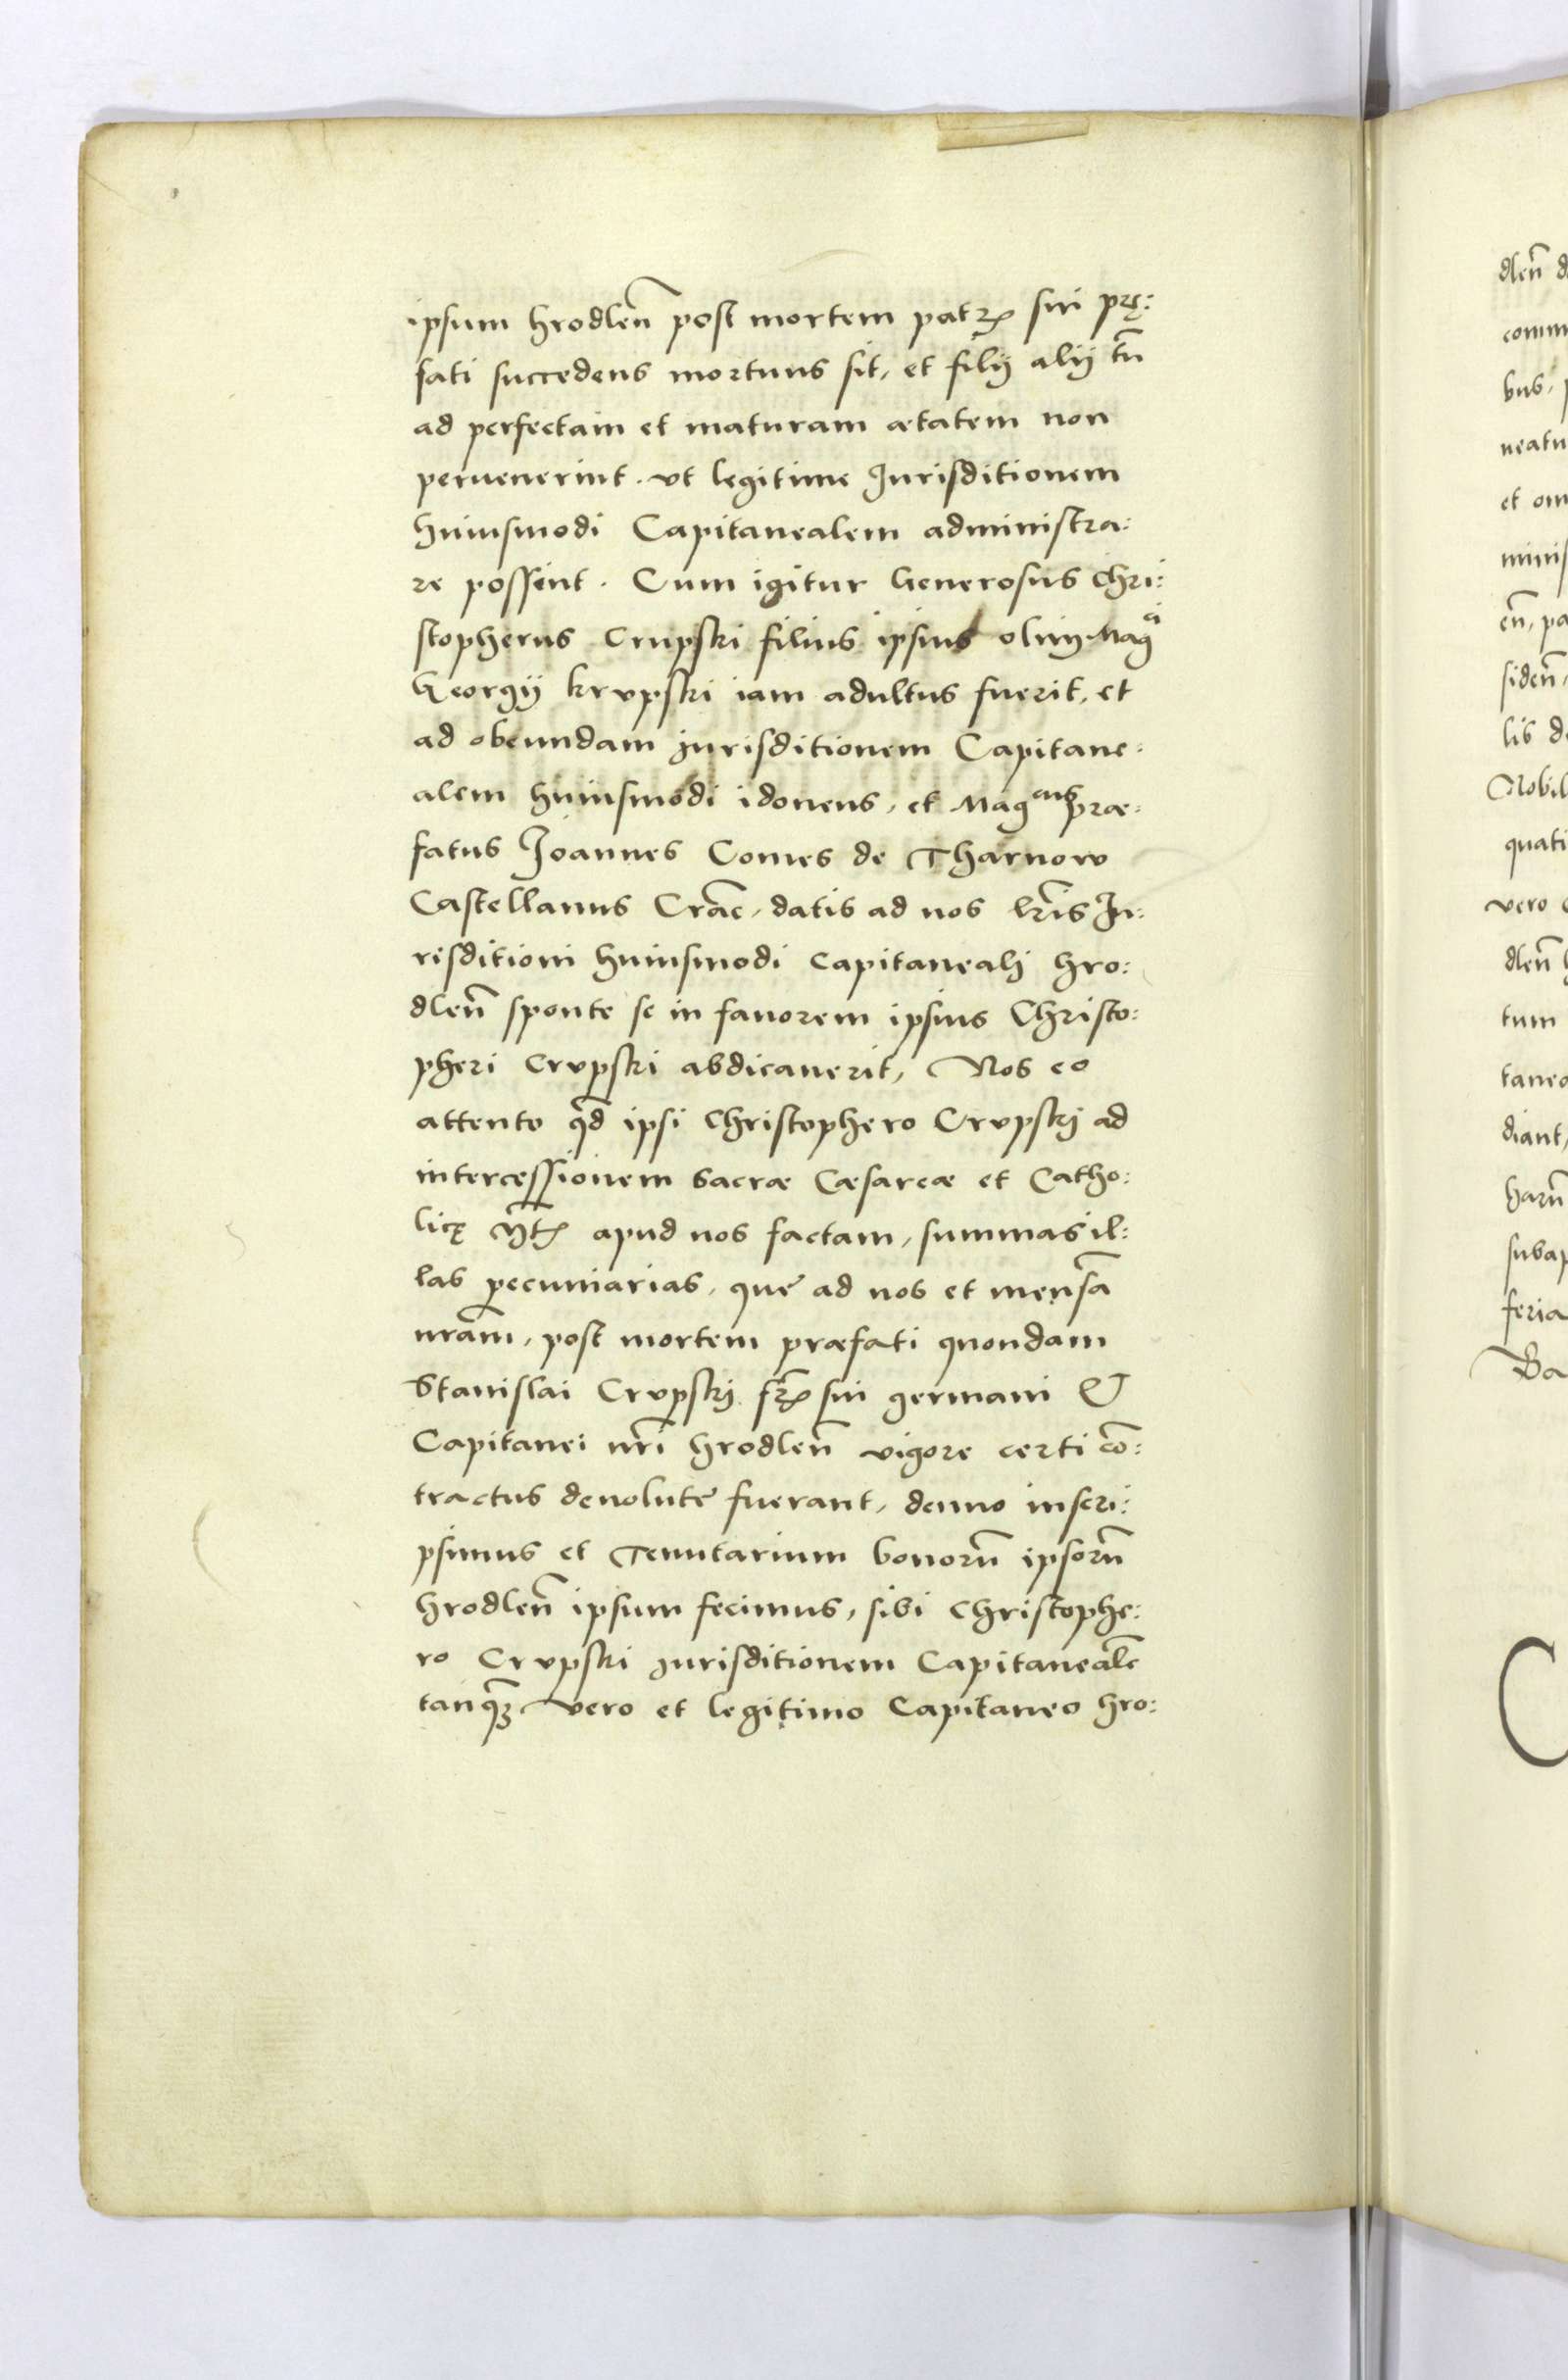 ipsum hrodleñ post mortem patris sui prę:
fati succedens mortuus sit, et filij alij tñ
ad perfectam et maturam ætatem non
peruenerint. vt legitime Jurisditionem
huiusmodi Capitanealem administra:
re possent. Cum igitur Generosus Chri:
stopherus Crupski filius ipsius olim Mag^ci
Georgij krvpski iam adultus fuerit, et
ad obeundam jurisditionem Capitane:
alem huiusmodi idoneus, et Mag^cus præ:
fatus Joannes Comes de Tharnow
Castellanus Crac̃, datis ad nos lr̃is Ju:
risditioni huiusmodi capitaneali hro:
dleñ sponte se in fauorem ipsius Christo:
pheri Crvpski abdicauerit, Nos eo
attento qd̃ ipsi Christophero Crvpskj ad
intercessionem Sacræ Cæsareæ et Catho:
licę Mt̃is apud nos factam, summas il:
las pecuniarias, que ad nos et mensã
nrãm, post mortem præfati quondam
Stanislai Crvpskj fr̃is sui germani &
Capitanei nr̃i hrodleñ vigore certi cõ:
tractus deuolute fuerant, denuo inscri:
psimus et Tenutarium bonorũ ipsorũ
hrodleñ ipsum fecimus, sibi Christophe:
ro Crvpski jurisditionem Capitanealẽ
tanq̃3 vero et legitimo Capitaneo hro:
dleñ
comm
bus,
neatu
et om
minis
eñ, pa
sideñ,
lis de
Nobil
quati
vero
dleñ
tum
taneo
diant,
harũ
subap
feria
Da
C